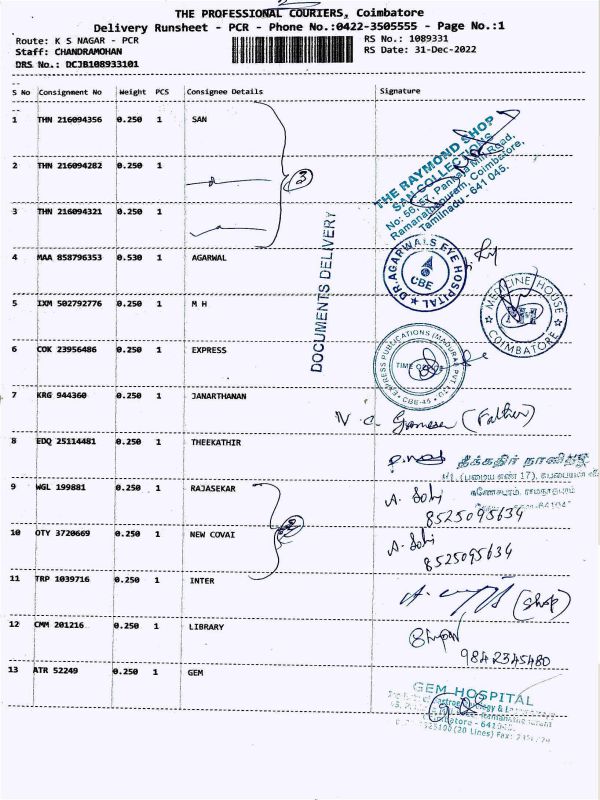 THE PROFESSIONAL COURIERS, Coimbatore
Delivery Runsheet - PCR - Phone No.:0422-3505555 - Page No.:1
Route: K S NAGAR - PCR
RS No.: 1089331
Staff: CHANDRAMOHAN
RS Date: 31-Dec-2022
DRS No.: DCJB108933101
S No Consignment No Weight PCS Consignee Details Signature
1 THN 216094356 0.250 1 SAN
THE RAYMOND SHOP
SAN COLLECTIONS
No: 56, 57, Pankaja Mill Road,
Ramanathapuram, Coimbatore,
Tamilnadu - 641 045.
2 THN 216094282 0.250 1
3
3 THN 216094321 0.250 1
DOCUMENTS DELIVERY
4 MAA 858796353 0.530 1 AGARWAL
DR. AGARWAL'S EYE HOSPITAL
CBE
5 IXM 502792776 0.250 1 M H
MEDICINE HOUSE
MH
COIMBATORE
6 COK 23956486 0.250 1 EXPRESS
EXPRESS PUBLICATIONS (MADURAI) PVT LTD
TIME OFFICE
CBE-45
7 KRG 944360 0.250 1 JANARTHANAN
(Father)
8 EDQ 25114481 0.250 1 THEEKATHIR
தீக்கதிர் நாளிதழ்
9 WGL 199881 0.250 1 RAJASEKAR
8525095634
2
10 OTY 3720669 0.250 1 NEW COVAI
8525095634
11 TRP 1039716 0.250 1 INTER
(Shop)
12 CMM 201216 0.250 1 LIBRARY
9842345480
13 ATR 52249 0.250 1 GEM
GEM HOSPITAL